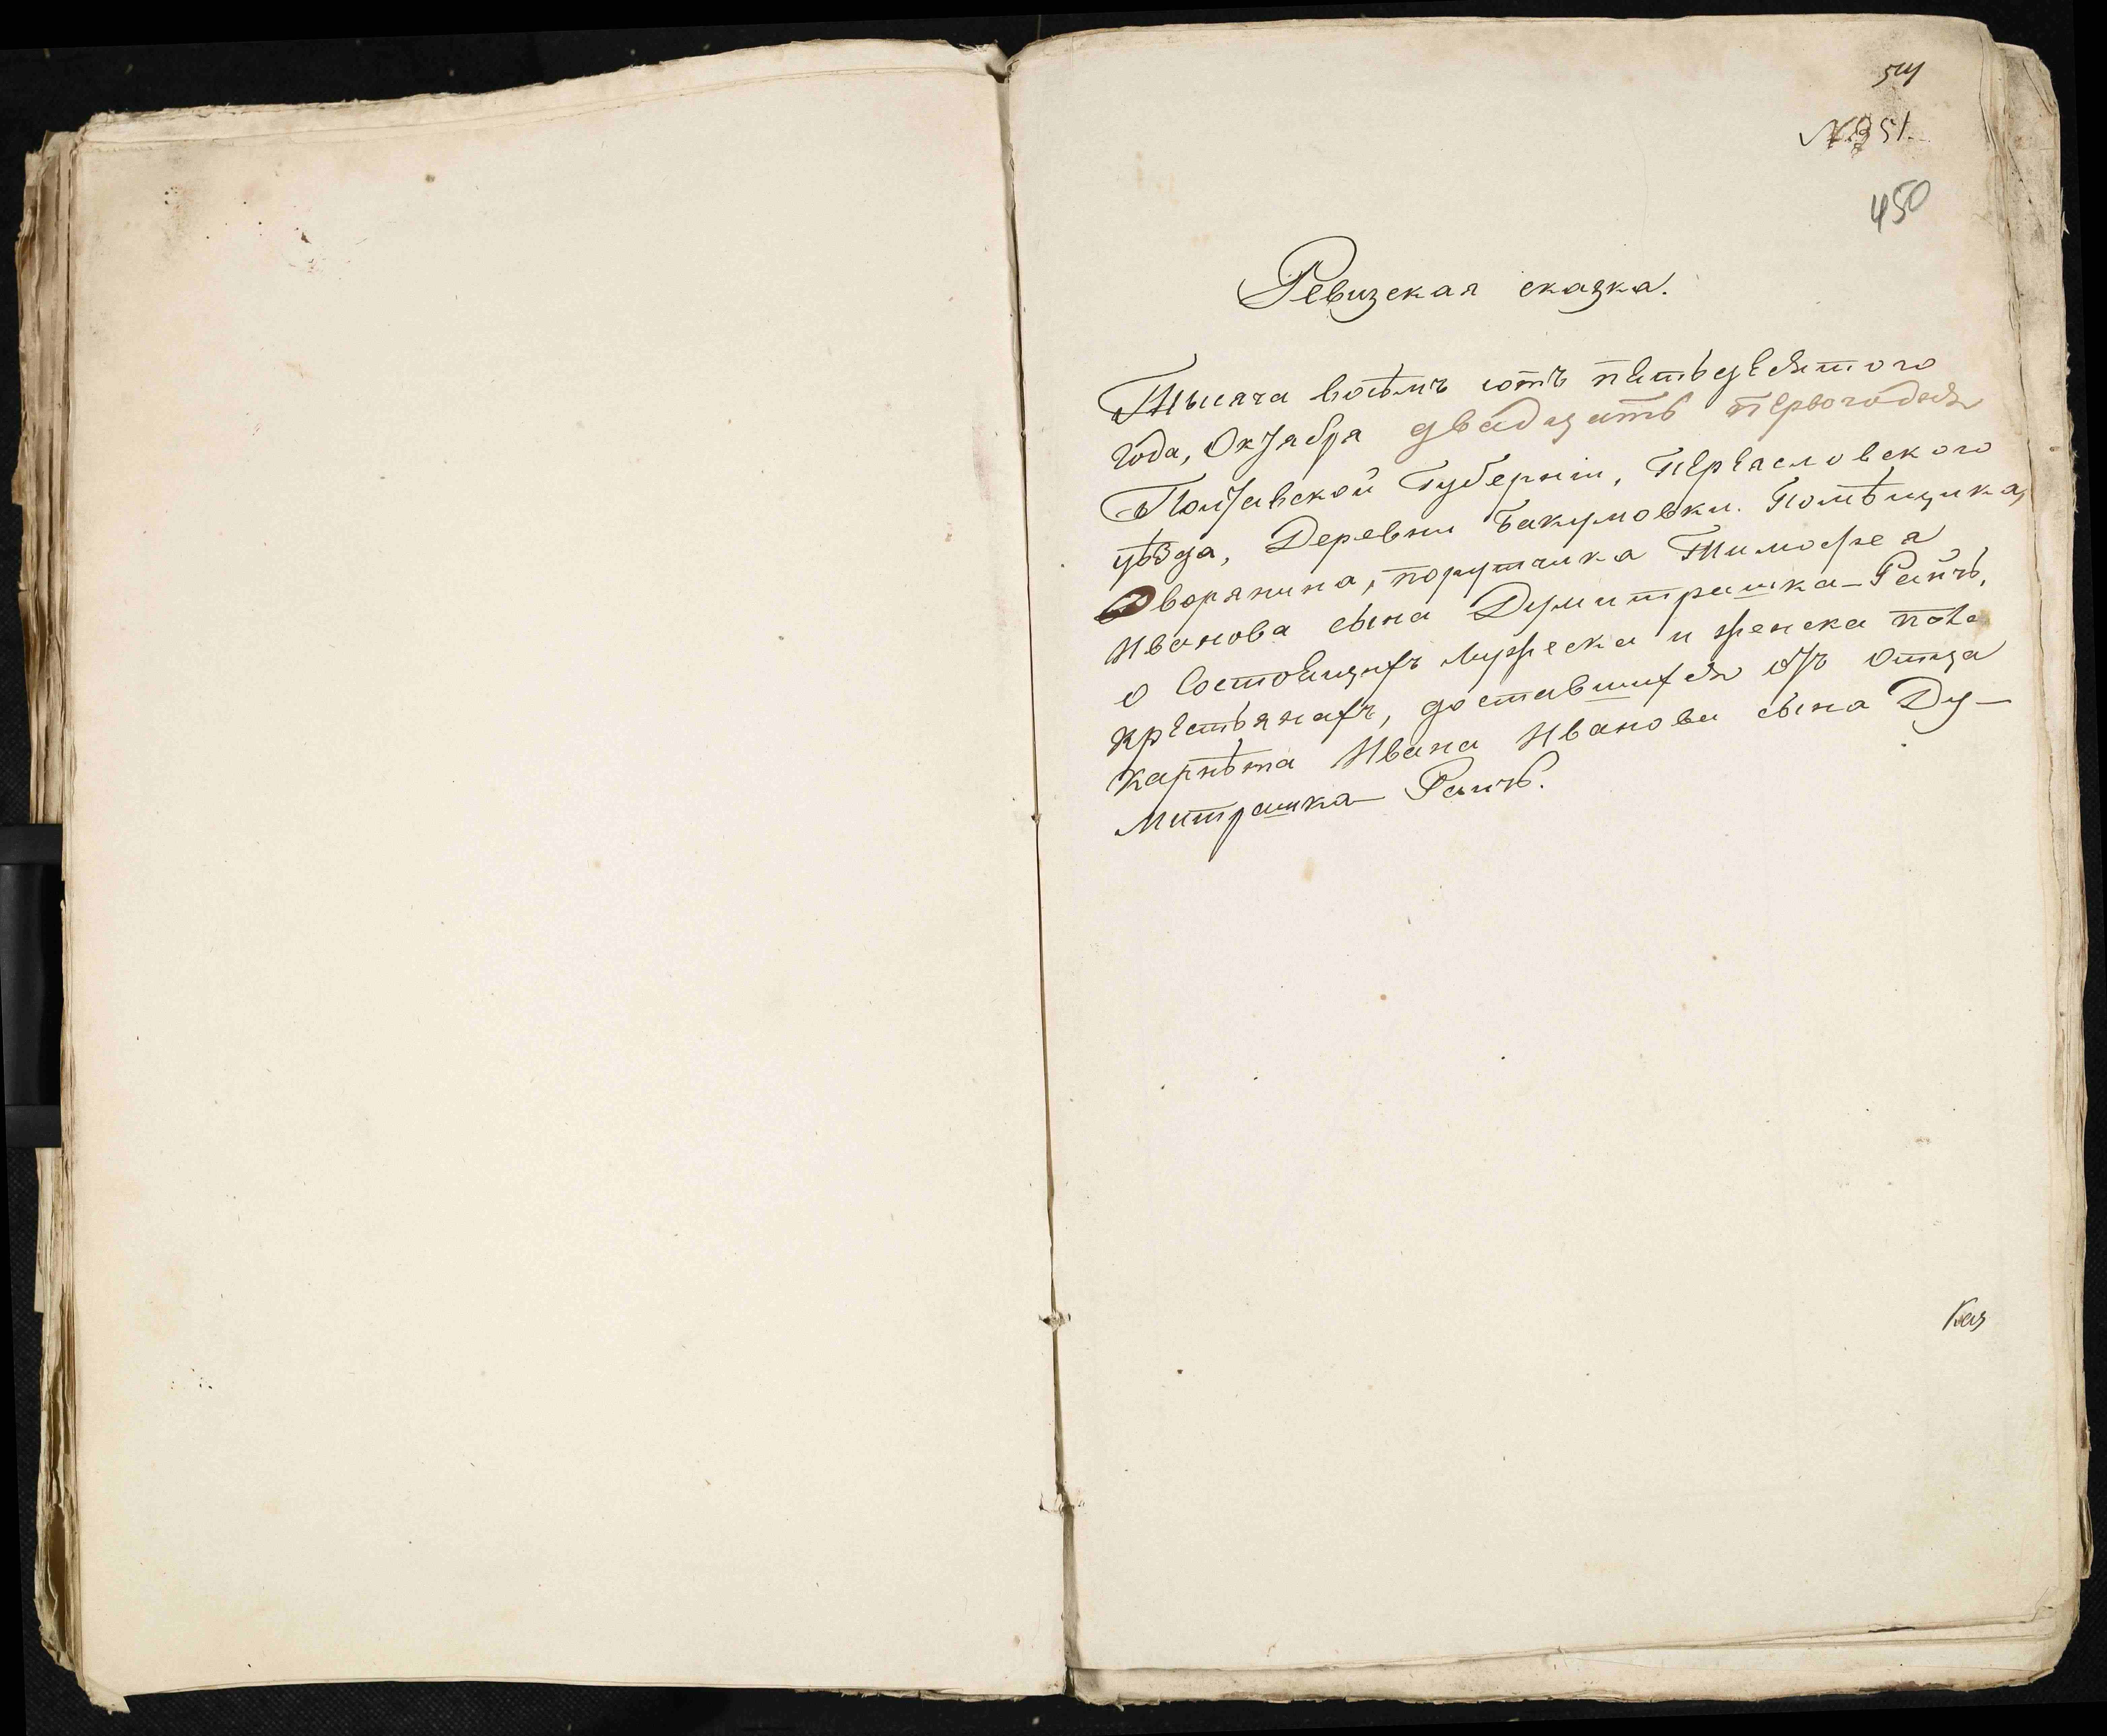 № 351.
450
Ревизская сказка.
Тысяча восѣмъ сотъ пятьдесятого
года, Октября двадцать первого дня
Полтавской Губерніи, Переясловского
уѣзда, Деревни Бакумовки. Помѣщика,
Дворянина, порутчика Тимофея
Иванова сына Думитрашка-Раичъ,
о Состоящихъ мужеска и женска пола
крестьянахъ, доставшихся отъ отца
Карнѣта Ивана Иванова сына Ду-
митрашка-Раичъ.